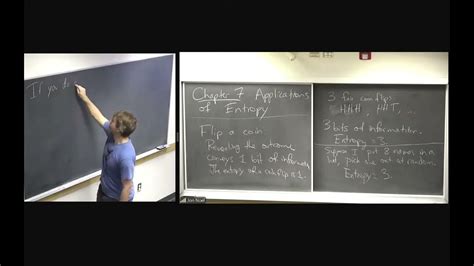 If you do
Chapter 7 Applications
of Entropy
Flip a coin
Revealing the outcome
conveys 1 bit of information
The entropy of a coin flip is 1.
3 fair coin flips
HHH, HHT, ...
3 bits of information.
Entropy = 3
Suppose I put 8 names in a
hat, pick one out at random.
Entropy = 3.
Jon Noel